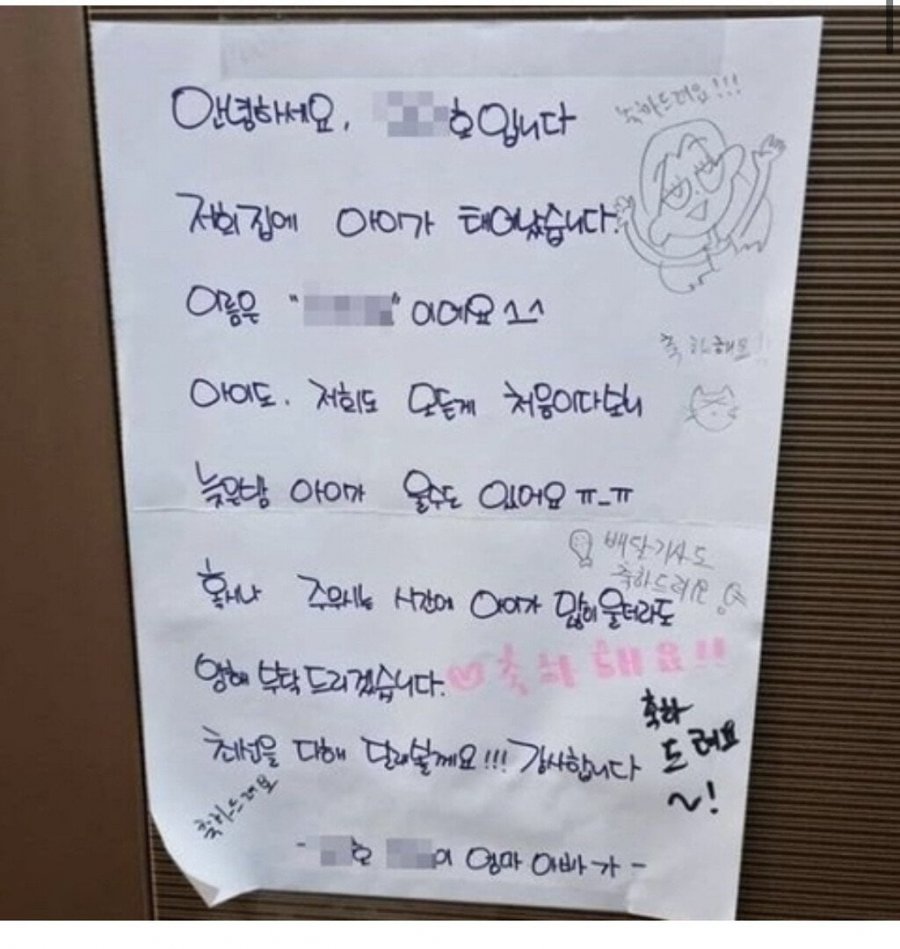 안녕하세요. 호입니다
축하드려요!!!
저희집에 아이가 태어났습니다.
이름은 " " 이에요 ^^
축하해요!
아이도. 저희도 모든게 처음이다보니
늦은밤 아이가 울수도 있어요 ㅠ_ㅠ
배달기사도
축하드려요
혹시나 주무시는 시간에 아이가 많이 울더라도
양해 부탁드리겠습니다.
♡축하해요!!
축하
드려요
~!
최선을 다해 달래볼께요!!! 감사합니다
축하드려요
- 호 이 엄마 아빠가 -